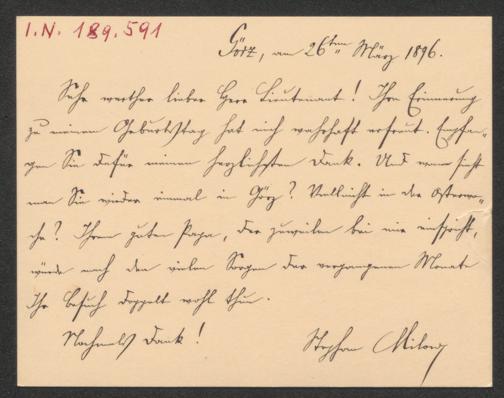 I.N. 189.591
Görz, am 26ten März 1896.
Sehr werther lieber Herr Lieutenant! Ihre Erinnerung
zu meinem Geburtstag hat mich wahrhaft erfreut. Empfan-
gen Sie dafür meinen herzlichsten Dank. Und wann sieht
man Sie wieder einmal in Görz? Vielleicht in der Osterwo-
che? Ihrem guten Papa, der zuweilen bei mir einspricht,
würde nach den vielen Sorgen der vergangenen Monate
Ihr Besuch doppelt wohl thun.
Nochmals Dank!
Stephan Milow